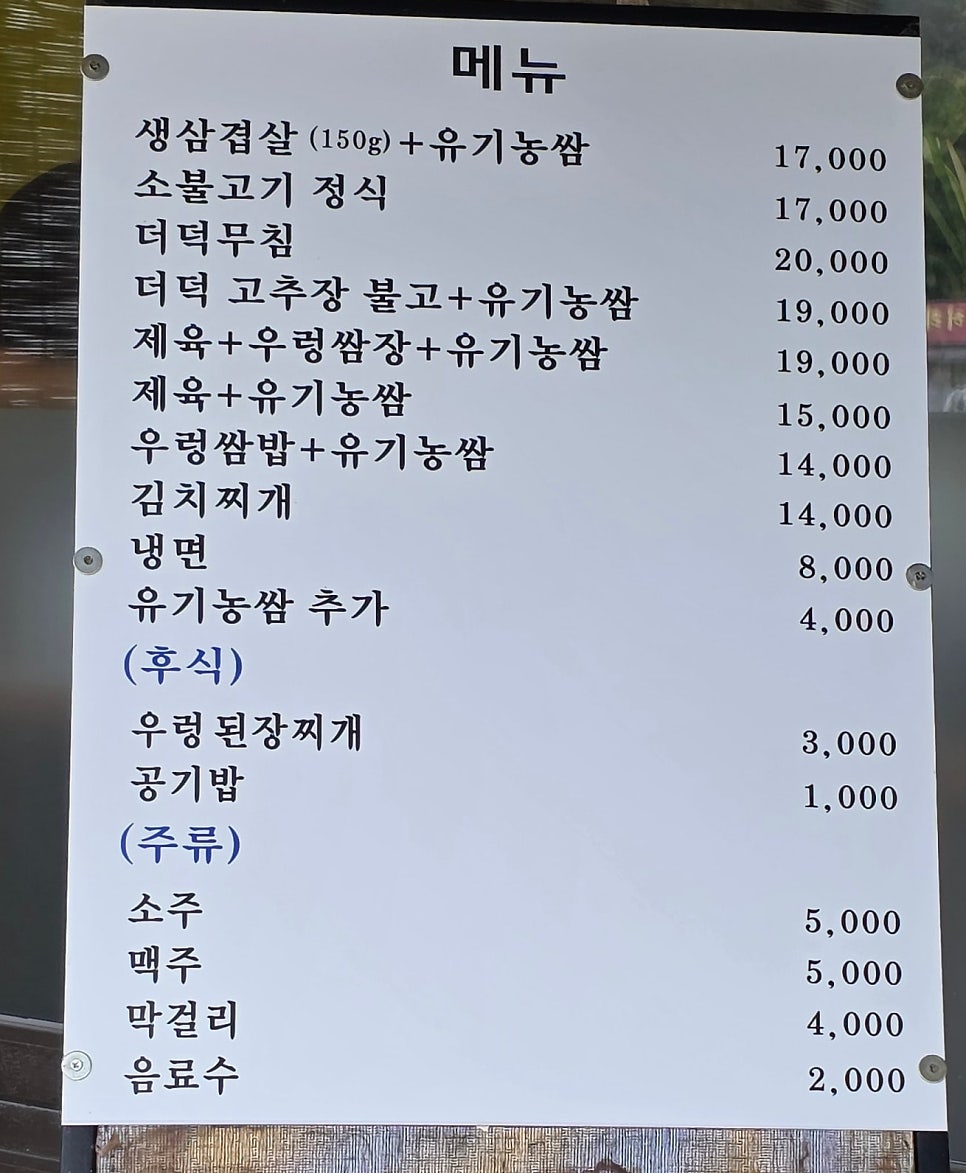 메뉴
생삼겹살 (150g)+유기농쌈 17,000
소불고기 정식 17,000
더덕무침 20,000
더덕 고추장 불고+유기농쌈 19,000
제육+우렁쌈장+유기농쌈 19,000
제육+유기농쌈 15,000
우렁쌈밥+유기농쌈 14,000
김치찌개 14,000
냉면 8,000
유기농쌈 추가 4,000
(후식)
우렁된장찌개 3,000
공기밥 1,000
(주류)
소주 5,000
맥주 5,000
막걸리 4,000
음료수 2,000